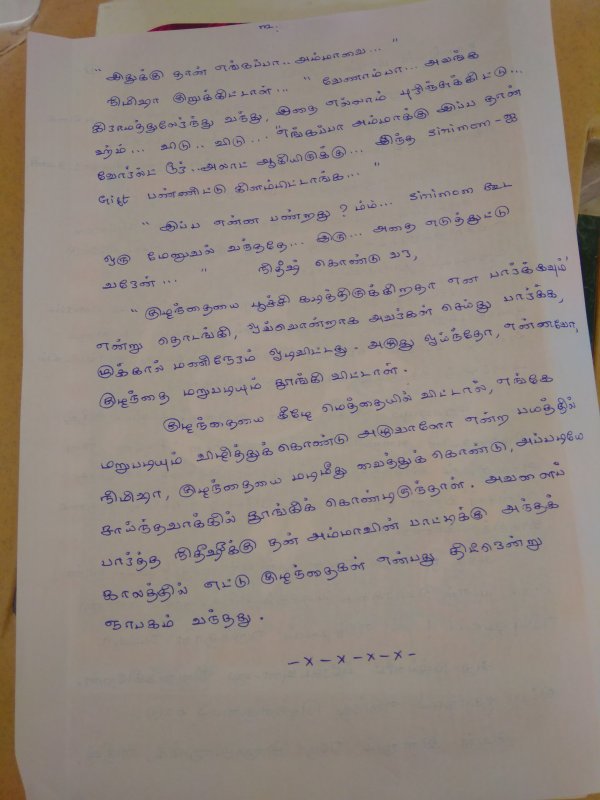 "அதுக்கு தான் எங்கப்பா.. அம்மாவை... "
நிமிஷா குறுக்கிட்டாள்... " வேணாம்பா... அவங்க
கிராமத்துலேர்ந்து வந்து, அதை எல்லாம் புரிஞ்சுக்கிட்டு...
ஹ்ம்... விடு.. விடு... "எங்கப்பா அம்மாக்கு இப்ப தான்
வோர்ல்ட் டூர்..அலாட் ஆகியிருக்கு... இந்த
Gift பண்ணிட்டு கிளம்பிட்டாங்க... "
" இப்ப என்ன பண்றது? ம்ம்... கூட
ஒரு மேனுவல் வந்ததே... இரு... அதை எடுத்துட்டு
வரேன்... " நிதீஷ் கொண்டு வர,
" குழந்தையை பூச்சி கடித்திருக்கிறதா என பார்க்கவும்'
என்று தொடங்கி, ஒவ்வொன்றாக அவர்கள் செய்து பார்க்க,
முக்கால் மணிநேரம் ஓடிவிட்டது. அழுது ஓய்ந்தோ, என்னவோ,
குழந்தை மறுபடியும் தூங்கி விட்டாள்.
குழந்தையை கீழே மெத்தையில் விட்டால், எங்கே
மறுபடியும் விழித்துக்கொண்டு அழுவாளோ என்ற பயத்தில்
நிமிஷா, குழந்தையை மடிமீது வைத்துக்கொண்டு, அப்படியே
சாய்ந்தவாக்கில் தூங்கிக் கொண்டிருந்தாள். அவளைப்
பார்த்த நிதீஷீக்கு தன் அம்மாவின் பாட்டிக்கு அந்தக்
காலத்தில் எட்டு குழந்தைகள் என்பது திடீரென்று
ஞாபகம் வந்தது.
-x-x-x-x-